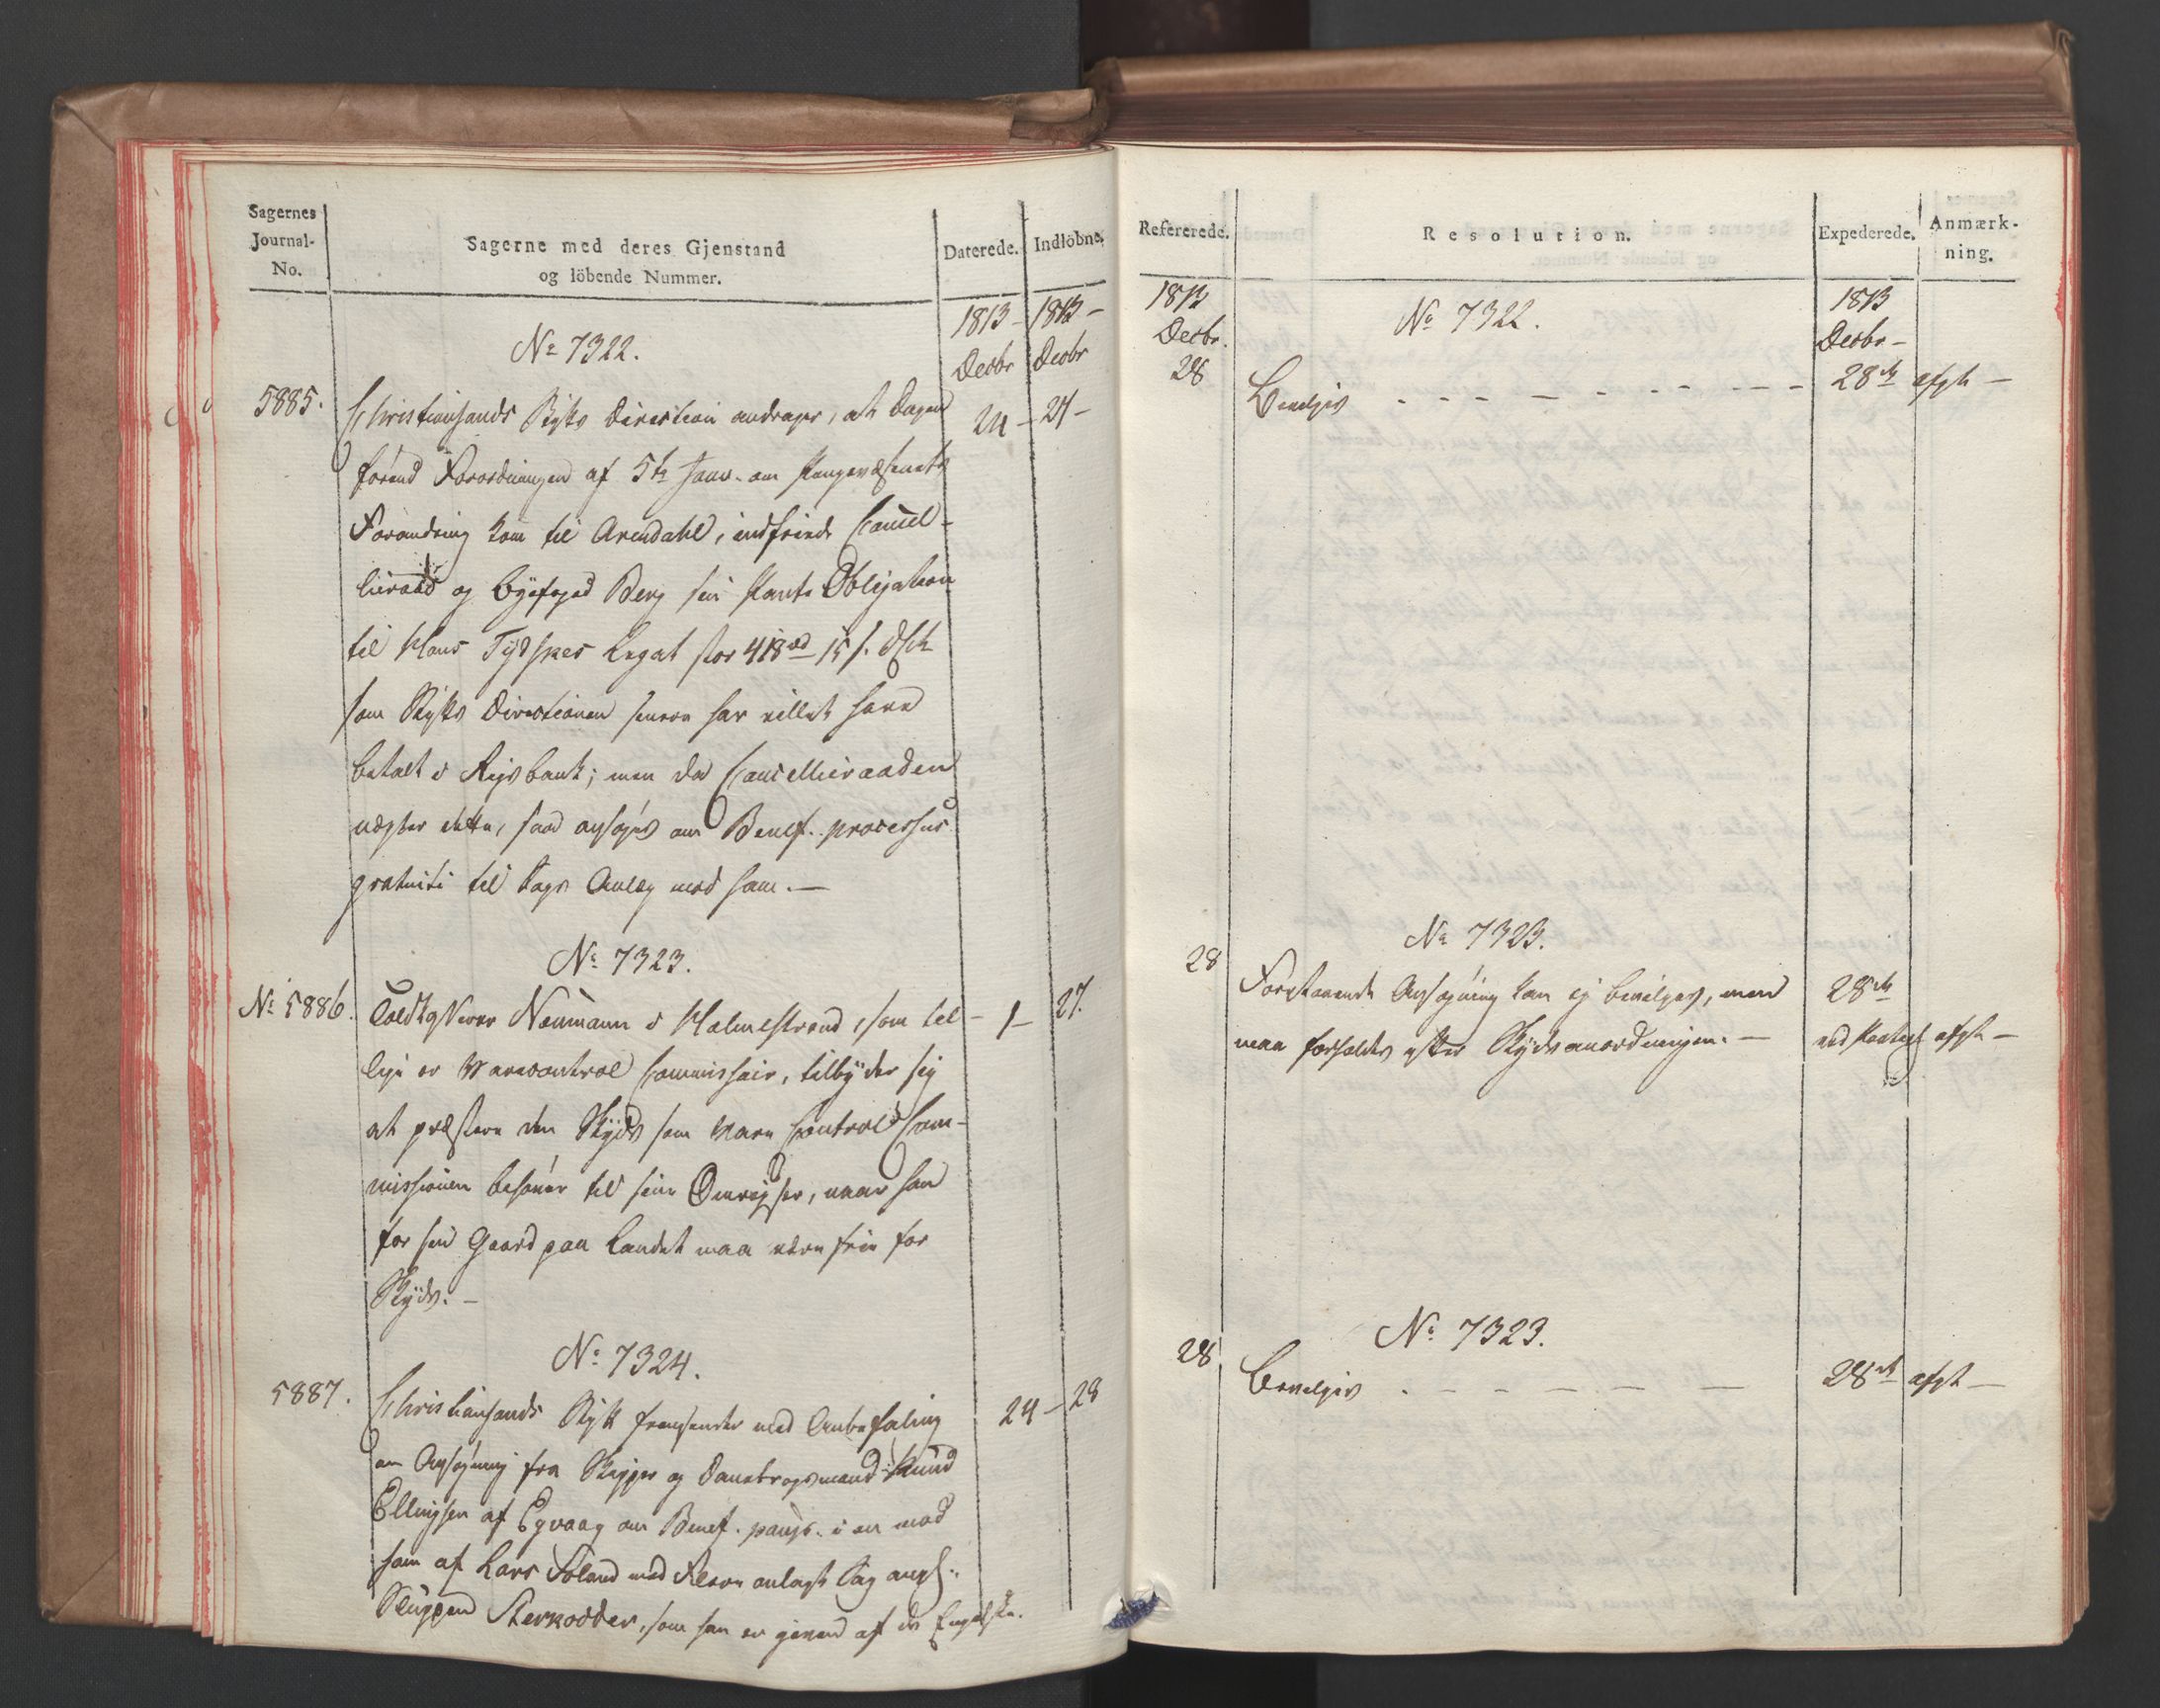 Sagernes
Journal-
No.
Sagerne med deres Gjenstand
og löbende Nummer.
Daterede.
Indlöbne.
1813 - 1813 -
Decbr Decbr
No 7322.
5885. Christiansands Stifts Direction andrager, at dagen 24 - 27 -
förend Forordningen af 5te Janv. om Pengevæsenets
Forandring kom til Arendahl, indfriede Cancel-
lieraad og Byefoged Berg sin Pante Obligation
til Hans Tydskes Legat stor 418 rd 15 s. d. C.
som Stifts Directionen senere har villet have
betalt i Rigsbank; men da Cancellieraaden
nægter dette, saa ansøges om Benef. processus
gratuiti til Sags Anlæg mod ham. —
No 7323.
No 5886. Toldkasserer Neumann i Holmestrand, som til- - 1 - 27.
lige er Warecontrol Commissair, tilbyder sig
at præstere den Skyds som Vare Control Com-
missionen behøver til sine Omrejser, naar han
for sin Gaard paa Landet maa være frie for
Skyds. —
No 7324.
5887. Christiansands Stift fremsender med Anbefaling 24 - 28
en Ansøgning fra Skipper og Danebrogsmand Knud
Ellingsen af Egvaag om Benef. paup. i en mod
ham af Lars Foland med Flere anlagt Sag ang.
Sluppen Sterkodder, som han er gaven af de Engelske.
Refererede.
Resolution.
Expederede.
Anmærk-
ning.
1813 1813
Decbr. Decbr -
No 7322.
28 Bevilges - - - - - - - - - 28de afgh —
No 7323.
28 Forestaaende Ansøgning kan ej bevilges, men 28de
maa forholdes efter Skydsanordningen. — ved Paategn afgh —
No 7323.
28 Bevilges - - - - - - 28de afgh —